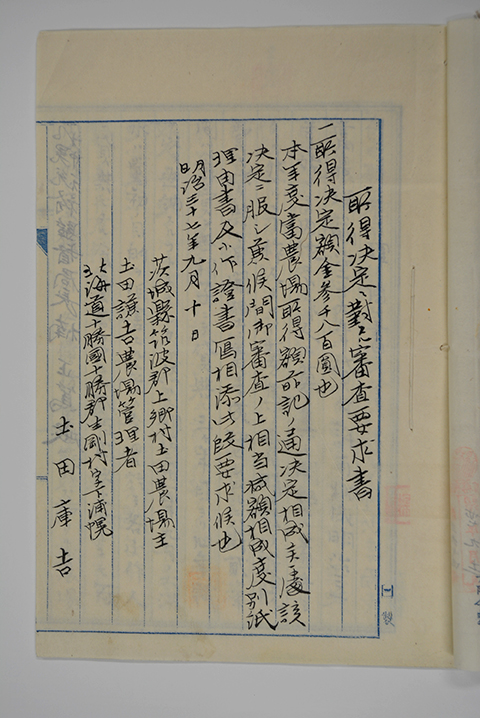 所得決定ニ對スル審査要求書
一所得決定額金参千八百圓也
本年度當農場所得額前記ノ通決定相成候處該
決定ニ服シ兼候間御審査ノ上相当減額相成度別紙
理由書及小作證書写相添此段要求候也
明治三十七年九月十日
茨城縣筑波郡上郷村土田農場主
土田謙吉農場管理者
北海道十勝國十勝郡生剛村字下浦幌
土田庫吉